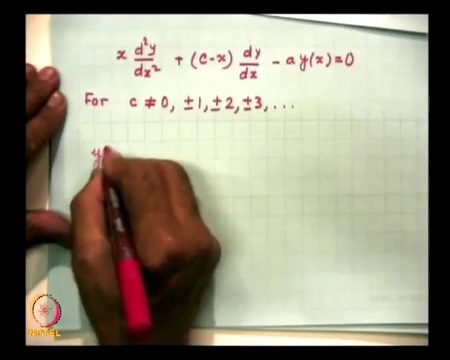 x d²y/dx² + (c-x) dy/dx - a y(x) = 0
For c ≠ 0, ±1, ±2, ±3, ...
y
NPTEL